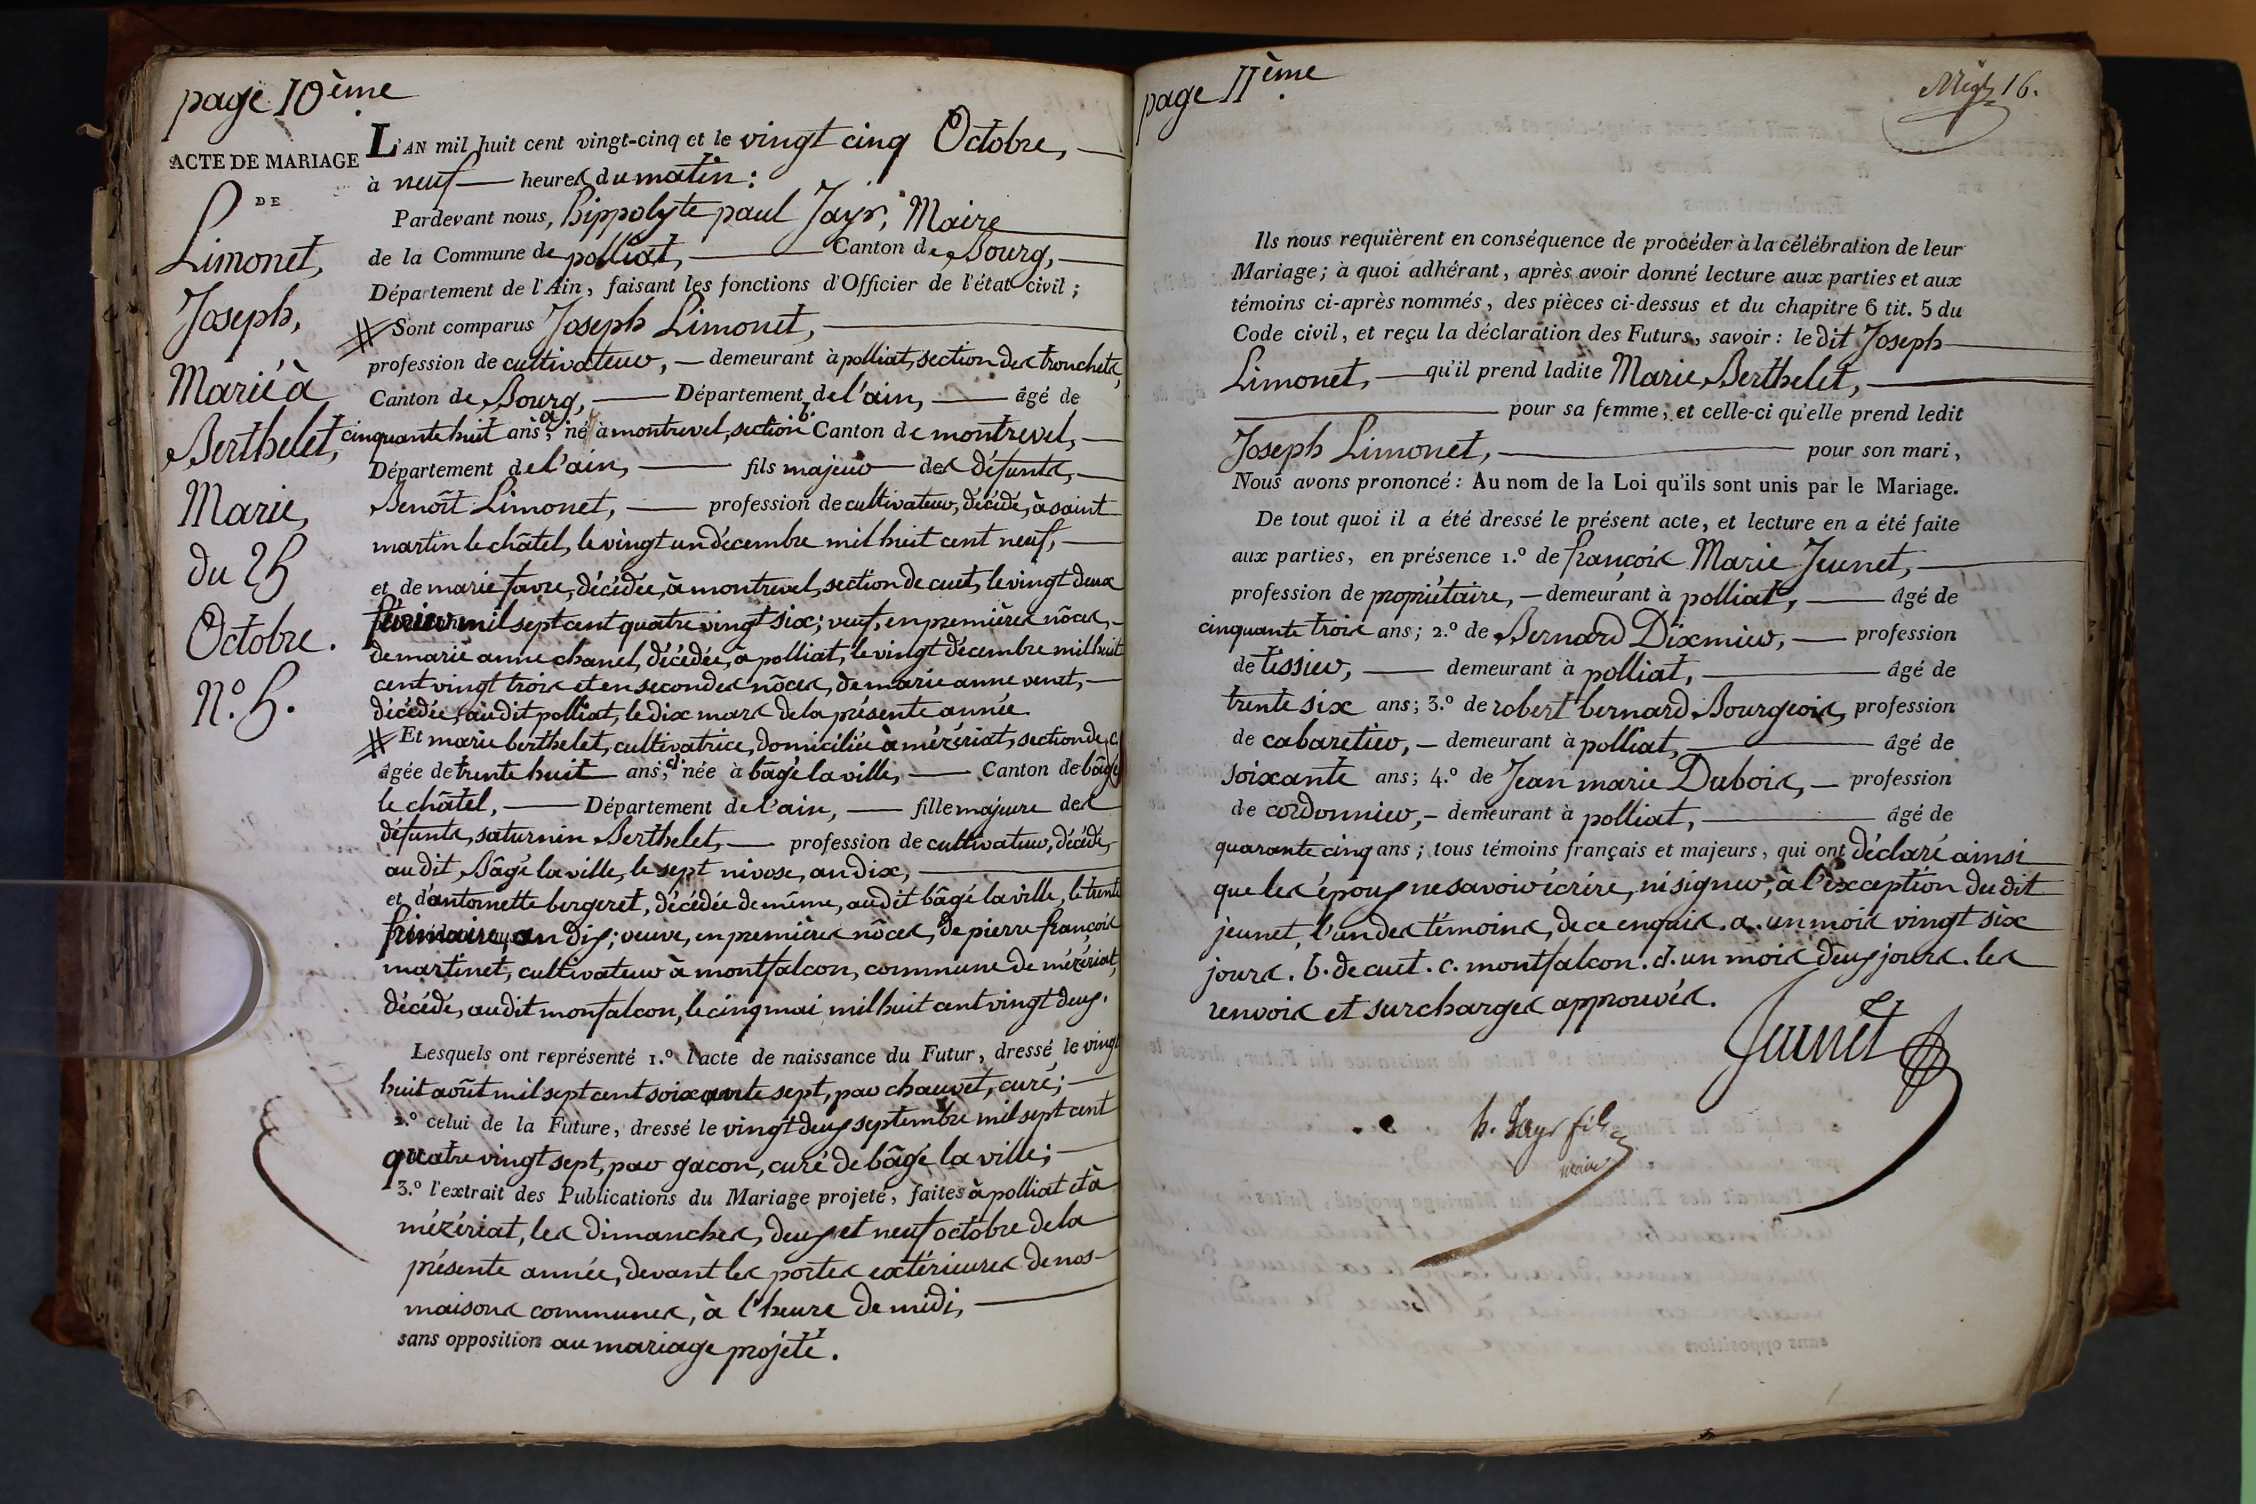 page 10ème
ACTE DE MARIAGE
DE
Limonet,
Joseph,
Marié à
Berthelet,
Marie,
du 25
Octobre.
N.º 5.
L'AN mil huit cent vingt-cinq et le vingt cinq Octobre,
à neuf heures du matin:
Pardevant nous, hippolyte paul Jayr, Maire
de la Commune de polliat, Canton de Bourg,
Département de l'Ain, faisant les fonctions d'Officier de l'état civil;
Sont comparus Joseph Limonet,
profession de cultivateur, demeurant à polliat, section des tronchets,
Canton de Bourg, Département de l'ain, âgé de
cinquante huit ans a, né à montrevel, section b. Canton de montrevel,
Département de l'ain, fils majeur des défunts,
Benoît Limonet, profession de cultivateur, décédé, à saint
martin le châtel, le vingt un décembre mil huit cent neuf,
et de marie favre, décédée, à montrevel, section de cuet, le vingt deux
février mil sept cent quatre vingt six; veuf, en premières nôces,
de marie anne chanel, décédée, à polliat, le vingt décembre mil huit
cent vingt trois et en secondes nôces, de marie anne venet,
décédée, audit polliat, le dix mars de la présente année.
Et marie berthelet, cultivatrice, domiciliée à mézériat, section de c.
âgée de trente huit ans, d. née à bâgé la ville, Canton de bâgé
le châtel, Département de l'ain, fille majeure des
défunts, saturnin Berthelet, profession de cultivateur, décédé,
audit Bâgé la ville, le sept nivose, an dix,
et d'antoinette bergeret, décédée de même, audit bâgé la ville, le trente
frimaire, an dix; veuve, en premières nôces, de pierre françois
martinet, cultivateur à montfalcon, commune de mézériat,
décédé, audit montfalcon, le cinq mai mil huit cent vingt deux.
Lesquels ont représenté 1.º l'acte de naissance du Futur, dressé le vingt
huit août mil sept cent soixante sept, par chauvet, curé;
2.º celui de la Future, dressé le vingt deux septembre mil sept cent
quatre vingt sept, par gacon, curé de bâgé la ville;
3.º l'extrait des Publications du Mariage projeté, faites à polliat et à
mézériat, les dimanches, deux et neuf octobre de la
présente année, devant les portes extérieures de nos
maisons communes, à l'heure de midi,
sans opposition au mariage projété.
page 11ème
16.
Ils nous requièrent en conséquence de procéder à la célébration de leur
Mariage; à quoi adhérant, après avoir donné lecture aux parties et aux
témoins ci-après nommés, des pièces ci-dessus et du chapitre 6 tit. 5 du
Code civil, et reçu la déclaration des Futurs, savoir: le dit Joseph
Limonet, qu'il prend ladite Marie Berthelet,
pour sa femme, et celle-ci qu'elle prend ledit
Joseph Limonet, pour son mari,
Nous avons prononcé: Au nom de la Loi qu'ils sont unis par le Mariage.
De tout quoi il a été dressé le présent acte, et lecture en a été faite
aux parties, en présence 1.º de françois Marie Jeunet,
profession de propriétaire, demeurant à polliat, âgé de
cinquante trois ans; 2.º de Bernard Dixmier, profession
de tissier, demeurant à polliat, âgé de
trente six ans; 3.º de robert bernard Bourgeois, profession
de cabaretier, demeurant à polliat, âgé de
soixante ans; 4.º de Jean marie Dubois, profession
de cordonnier, demeurant à polliat, âgé de
quarante cinq ans; tous témoins français et majeurs, qui ont déclaré ainsi
que les époux ne savoir écrire, ni signer, à l'exception du dit
jeunet, l'un des témoins, de ce enquis. a. un mois vingt six
jours. b. de cuet. c. montfalcon. d. un mois deux jours. les
renvois et surcharges approuvés.
Jeunet
h. Jayr fils
maire